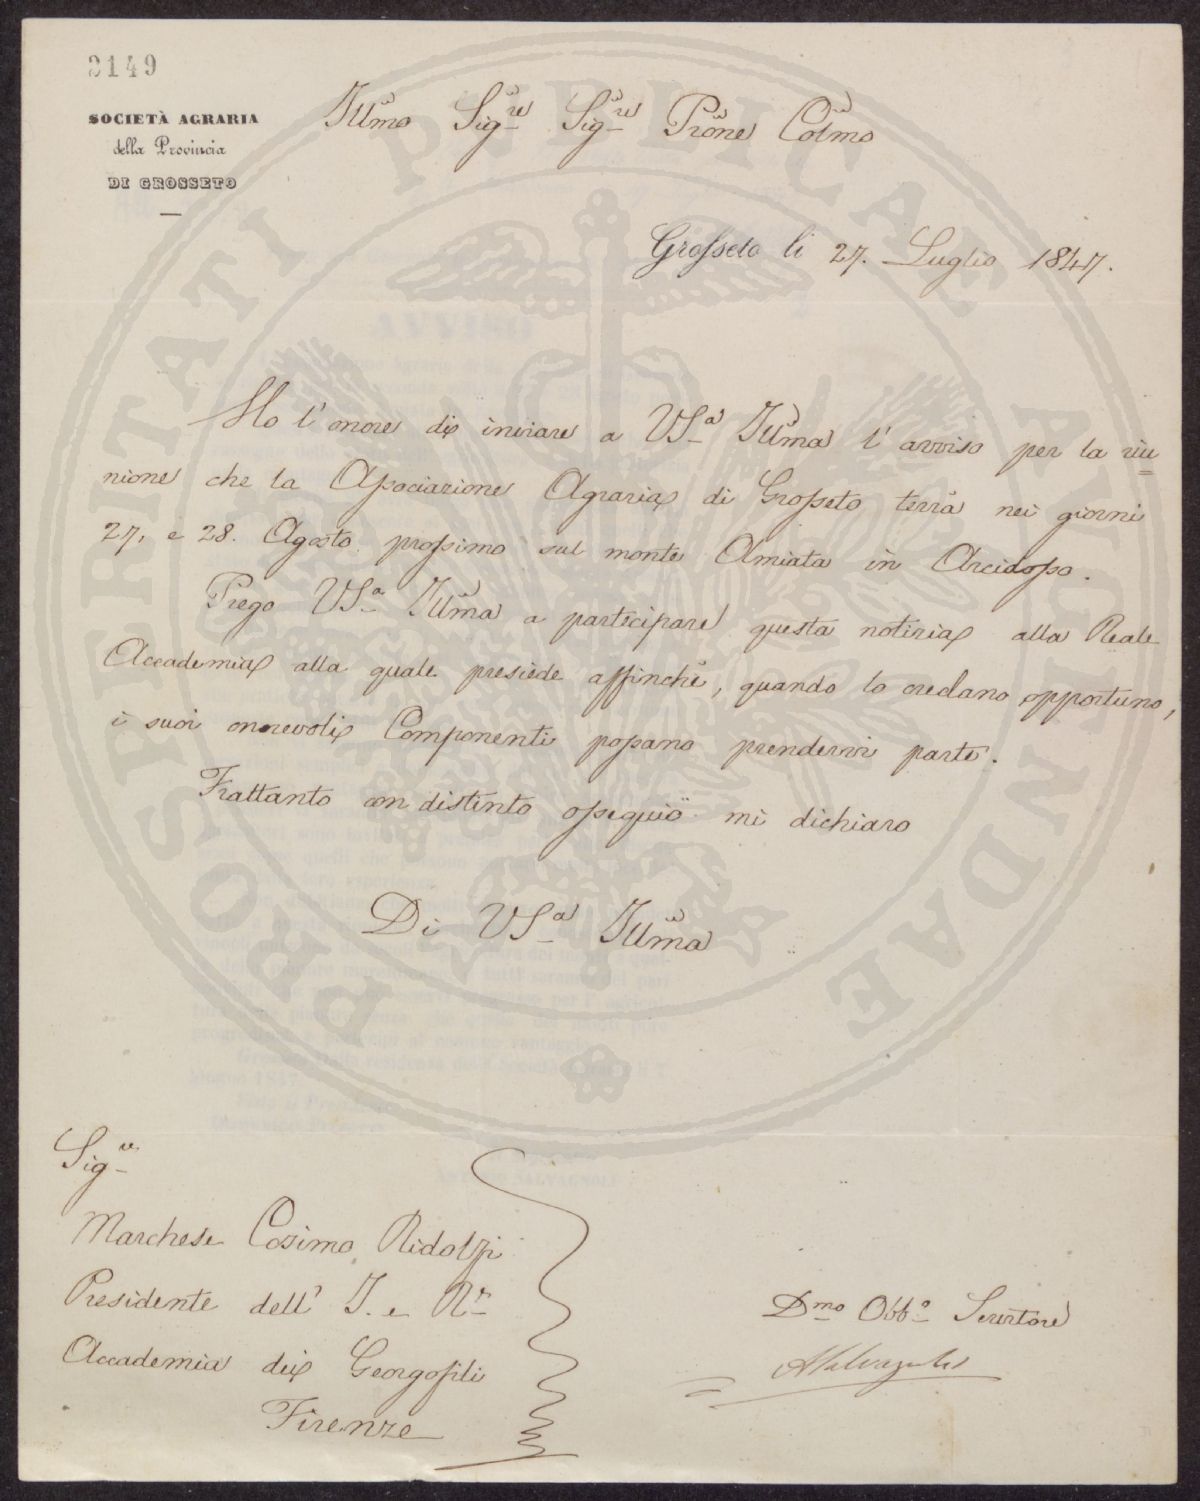 3149
SOCIETÀ AGRARIA
della Provincia
DI GROSSETO
Illmo Sigre Sigre Prone Colmo
Grosseto li 27. Luglio 1847.
Ho l'onore di inviare a VSa Illma l'avviso per la riu=
nione che la Associazione Agraria di Grosseto terrà nei giorni
27, e 28. Agosto prossimo sul monte Amiata in Arcidosso.
Prego VSa Illma a partecipare questa notizia alla Reale
Accademia alla quale presiede affinchè, quando lo credano opportuno,
i suoi onorevoli Componenti possano prendervi parte.
Frattanto con distinto ossequio mi dichiaro
Di VSa Illma
Sigre
Marchese Cosimo Ridolfi
Presidente dell' I. e Rle
Accademia dei Georgofili
Firenze
Dmo Obbo Servitore
ASalvagnoli
PROSPERITATI PUBLICAE AUGENDAE
AVVISO